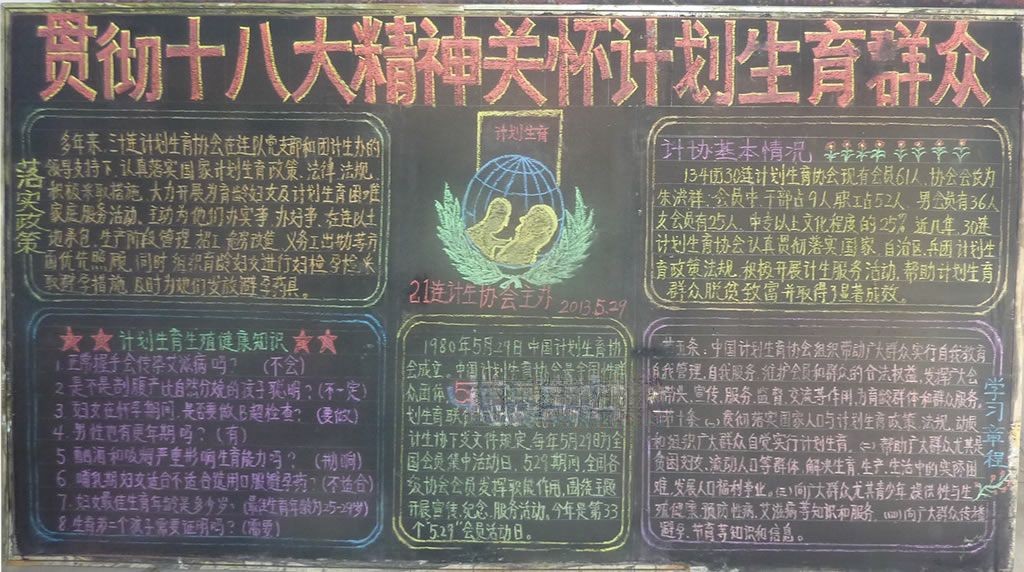 贯彻十八大精神关怀计划生育群众
落实政策
多年来，三十连计划生育协会在连队党支部和团计生办的
领导支持下，认真落实国家计划生育政策、法律、法规，
积极采取措施，大力开展为育龄妇女及计划生育困难
家庭服务活动，主动为他们办实事、办好事，在连队土
地承包，生产阶段管理
面优先照顾，同时组织育龄妇女进行妇检、孕检、采
取避孕措施，及时为她们发放避孕药具。
计划生育
21连计生协会主办 2013.5.29
计协基本情况
134团30连计划生育协会现有会员61人，协会会长为
朱洪群，会员中，干部占9人，职工占52人，男会员有36人
女会员有25人，中专以上文化程度的25%，近几年，30连
计划生育协会认真贯彻落实国家、自治区、兵团计划生
育政策法规，积极开展计生服务活动，帮助计划生育
群众脱贫致富并取得了显著成效。
计划生育生殖健康知识
1.正常握手会传染艾滋病吗？（不会）
2.是不是剖腹产比自然分娩的孩子聪明？（不一定）
3.妇女在怀孕期间，是否要做B超检查？（要做）
4.男性也有更年期吗？（有）
5.酗酒和吸烟严重影响生育能力吗？（影响）
6.哺乳期妇女适合不适合选用口服避孕药？（不适合）
7.妇女最佳生育年龄是多少岁？（最佳生育年龄为25-29岁）
8.生育第一个孩子需要证明吗？（需要）
1980年5月29日中国计划生育协
会成立，中国计划生育协会是全国性群
众团体
划生育联
计生协下发文件规定，每年5月29日为
全国会员集中活动日，5.29期间，全国各
级协会会员发挥职能作用，围绕主题
开展宣传、纪念、服务活动。今年是第33
个"5.29"会员活动日。
学习章程
第五条：中国计划生育协会组织带动广大群众实行自我教育
自我管理、自我服务，维护会员和群众的合法权益，发挥广大会
带头、宣传、服务、监督、交流等作用，为育龄群体和群众服务。
第十条：㈠贯彻落实国家人口与计划生育政策、法规，动员
和组织广大群众自觉实行计划生育。㈡帮助广大群众尤其是
贫困妇女、流动人口等群体，解决生育、生产、生活中的实际困
难，发展人口福利事业。㈢向广大群众尤其青少年提供性与生
殖健康、预防性病、艾滋病等知识和服务。㈣向广大群众传播
避孕、节育等知识和信息。